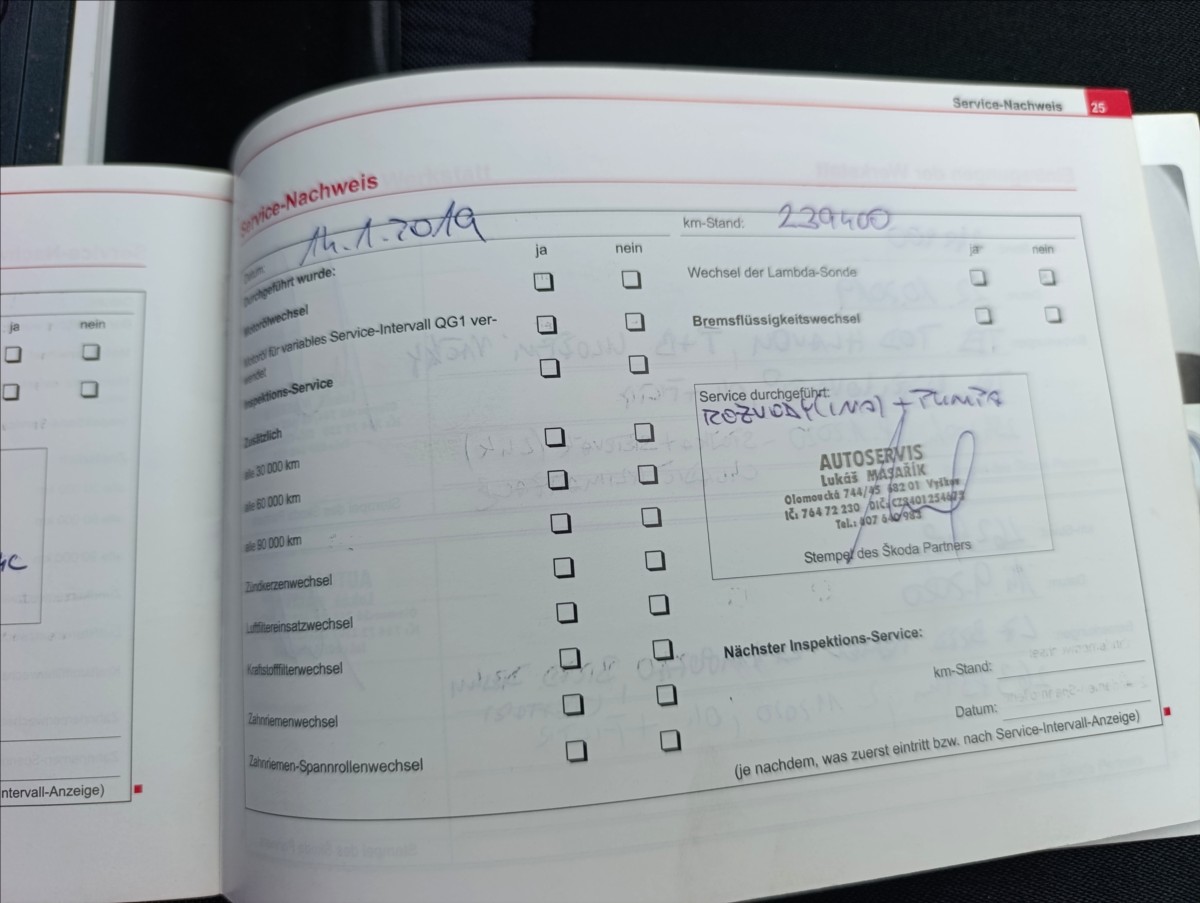 Service-Nachweis 25
Service-Nachweis
Datum: 14.1.2019
km-Stand: 239400
Durchgeführt wurde:
ja nein
Motorölwechsel
Motoröl für variables Service-Intervall QG1 ver-
wendet
Inspektions-Service
Zusätzlich
alle 30 000 km
alle 60 000 km
alle 90 000 km
Zündkerzenwechsel
Luftfiltereinsatzwechsel
Kraftstofffilterwechsel
Zahnriemenwechsel
Zahnriemen-Spannrollenwechsel
ja nein
Wechsel der Lambda-Sonde
Bremsflüssigkeitswechsel
Service durchgeführt:
ROZVODY (INA) + PUMPA
AUTOSERVIS
Lukáš MASAŘÍK
Olomoucká 744/45 682 01 Vyškov
IČ: 764 72 230 DIČ: CZ8401254673
Tel.: 607 640 983
Stempel des Škoda Partners
Nächster Inspektions-Service:
km-Stand:
Datum:
(je nachdem, was zuerst eintritt bzw. nach Service-Intervall-Anzeige)
ja nein
ntervall-Anzeige)